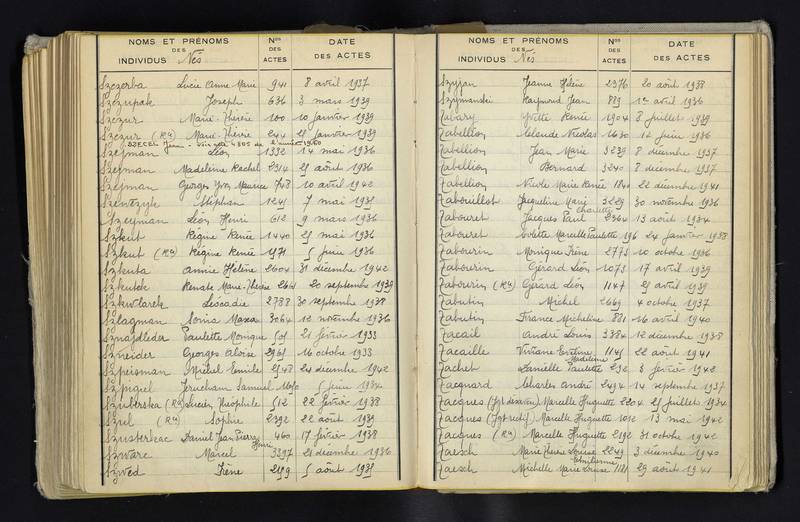 NOMS ET PRÉNOMS DES INDIVIDUS Nés Nos DES ACTES DATE DES ACTES
Szczerba Lucie Anne Marie 941 8 avril 1937
Szczupak Joseph 636 3 mars 1939
Szczur Marie-Thérèse 100 10 janvier 1939
Szczur (Rée) Marie-Thérèse 244 25 janvier 1939
Szejman Léon 1332 14 mai 1936
Szejman Madeleine Rachel 2314 25 août 1936
Szejman Georges Yvon Maurice 748 10 avril 1942
Szewczyk Stéphan 1245 7 mai 1935
Szczyman Léon Henri 612 9 mars 1936
Szkut Régine Renée 1440 25 mai 1936
Szkut (Rée) Régine Renée 1571 5 juin 1936
Szkuta Annie Hélène 2604 31 décembre 1942
Szkutek Renate Marie-Thérèse 20 septembre 1939
Szkwlarek Léocadie 2788 30 septembre 1938
Szlagman Sonia Maxa 3064 12 novembre 1936
Sznajdleder Paulette Monique 505 21 février 1933
Szneider Georges Aloïse 2965 16 octobre 1933
Szpeisman Michel Emile 2548 24 décembre 1942
Szpigiel Jerucham Samuel 5 juin 1934
Szuberska (Rée) Lucien, Théophile 512 22 février 1938
Szul (Rée) Sophie 2392 22 août 1939
Szusterkac Daniel Jean Pierre Henri 460 17 février 1938
Szwarc Marcel 3397 21 décembre 1936
Szwed Irène 2159 5 août 1935
NOMS ET PRÉNOMS DES INDIVIDUS Nés Nos DES ACTES DATE DES ACTES
Szyjan Jeanne Hélène 2376 20 août 1938
Szymanski Raymond Jean 889 1er avril 1936
Tabary Yvette Renée 1904 8 juillet 1939
Tabellion Claude Nicolas 1630 12 juin 1936
Tabellion Jean Marie 3239 8 décembre 1937
Tabellion Bernard 3240 8 décembre 1937
Tabellion Nicole Marie Renée 1840 22 décembre 1941
Tabouillot Jacqueline Marie Charlotte 3229 30 novembre 1936
Tabouret Jacques Paul 2364 13 août 1934
Tabouret Colette Marcelle Paulette 196 24 janvier 1938
Tabourin Monique Irène 2773 10 octobre 1936
Tabourin Gérard Léon 1073 17 avril 1939
Tabourin (Rée) Gérard Léon 1147 25 avril 1939
Tabutin Michel 2669 4 octobre 1937
Tabutin France Micheline 881 16 avril 1940
Tacail André Louis 3384 12 décembre 1938
Tacaille Viviane Eveline 1145 22 août 1941
Tachet Danielle Paulette Madeleine 232 3 février 1942
Tacquard Charles André 2494 14 septembre 1937
Tacques (Jgt) Marcelle Huguette 2204 25 juillet 1934
Tacques (Jgt rectif) Marcelle Huguette 1032 13 mai 1942
Tacques (Rée) Marcelle Huguette 2192 31 octobre 1942
Taesch Marie Thérèse Louise Emilienne 2249 3 décembre 1940
Taesch Michelle Marie Louise 1181 29 août 1941